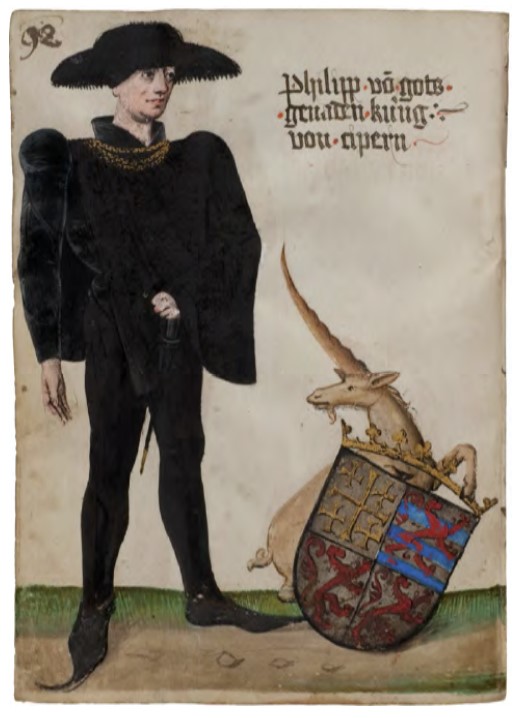 92
philipp · võ · gots ·
· genaden · küng :~
von · cipern ·